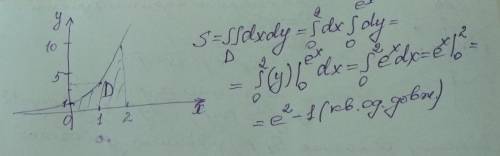 y
10
5
1
D
0
1
2
x
S=∬dxdy=∫₀²dx∫₀^{eˣ}dy=
D
=∫₀²(y)|₀^{eˣ}dx=∫₀²eˣdx=eˣ|₀²=
=e²-1(кв.од.довж.)